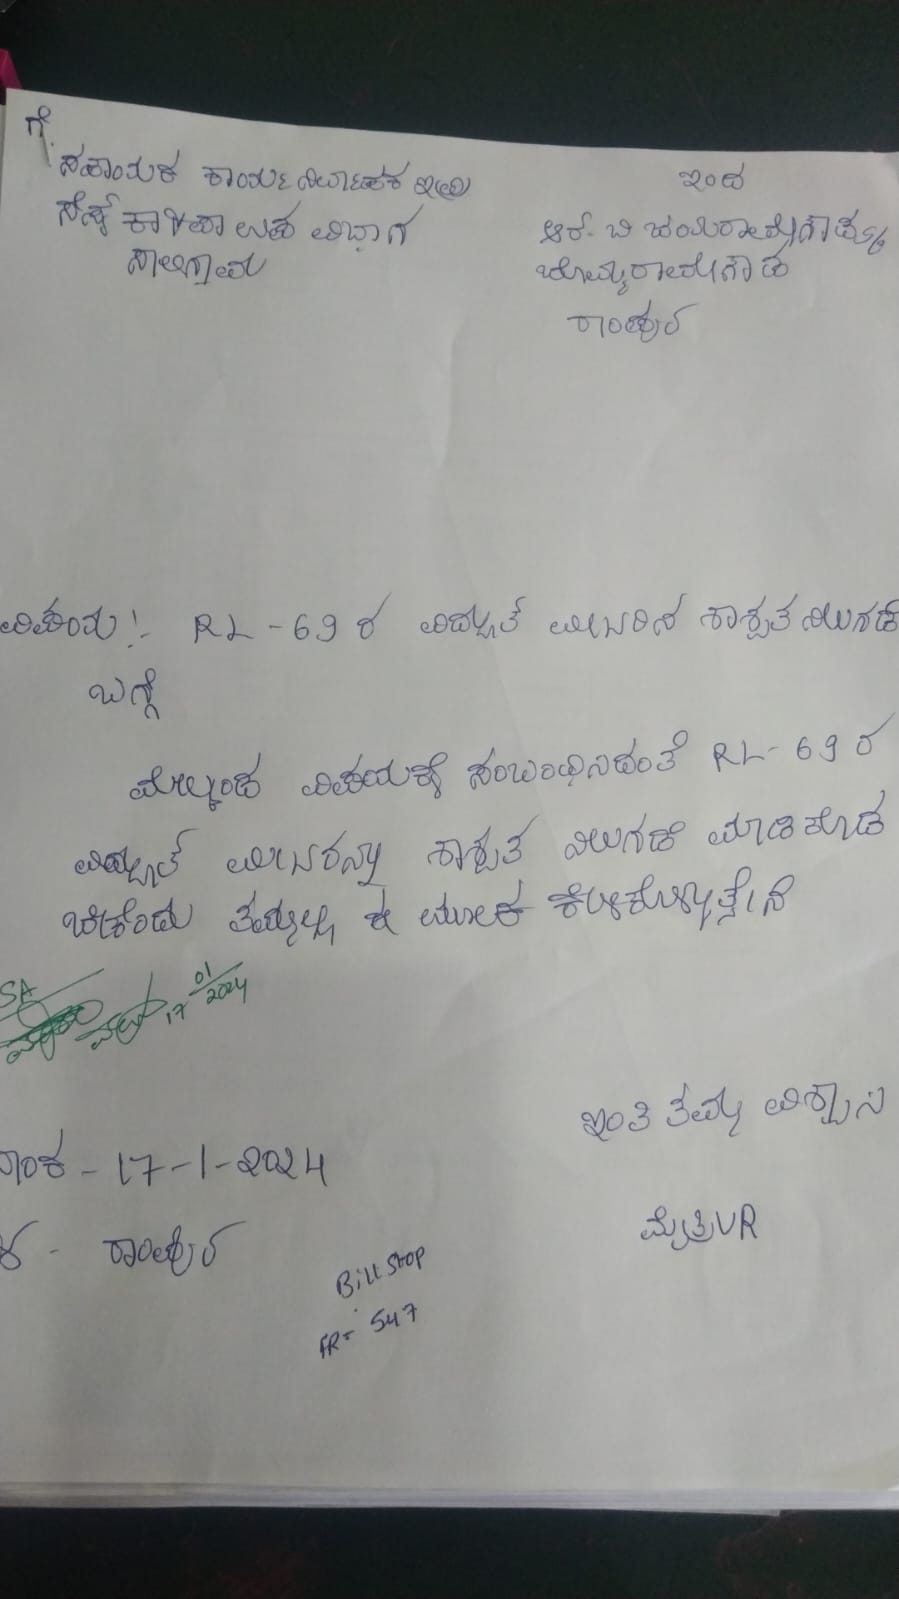 ಗೆ.
ಸಹಾಯಕ ಕಾರ್ಯ ನಿರ್ವಾಹಕ
ಸೆಸ್ಕ್ ಕಾ ಮತ್ತು ಪಾ ಉಪ ವಿಭಾಗ
ಸಾಲಿಗ್ರಾಮ
ಇಂದ
ಆರ್. ಬಿ
ರಾಂಪುರ
ವಿಷಯ:- RL-69 ರ ವಿದ್ಯುತ್ ಮೀಟರಿನ ಶಾಶ್ವತ ನಿಲುಗಡೆ
ಬಗ್ಗೆ
ಮೇಲ್ಕಂಡ ವಿಷಯಕ್ಕೆ ಸಂಬಂಧಿಸಿದಂತೆ RL-69 ರ
ವಿದ್ಯುತ್ ಮೀಟರನ್ನು ಶಾಶ್ವತ ನಿಲುಗಡೆ ಮಾಡಿಕೊಡ
ಬೇಕೆಂದು ತಮ್ಮಲ್ಲಿ ಈ ಮೂಲಕ ಕೇಳಿಕೊಳ್ಳುತ್ತೇನೆ
SA
17/01/2024
ಇಂತಿ ತಮ್ಮ ವಿಶ್ವಾಸಿ
ನಾಂಕ - 17-1-2024
ಮೈತ್ರಿ VR
ಳ - ರಾಂಪುರ
Bill Stop
FR= 547